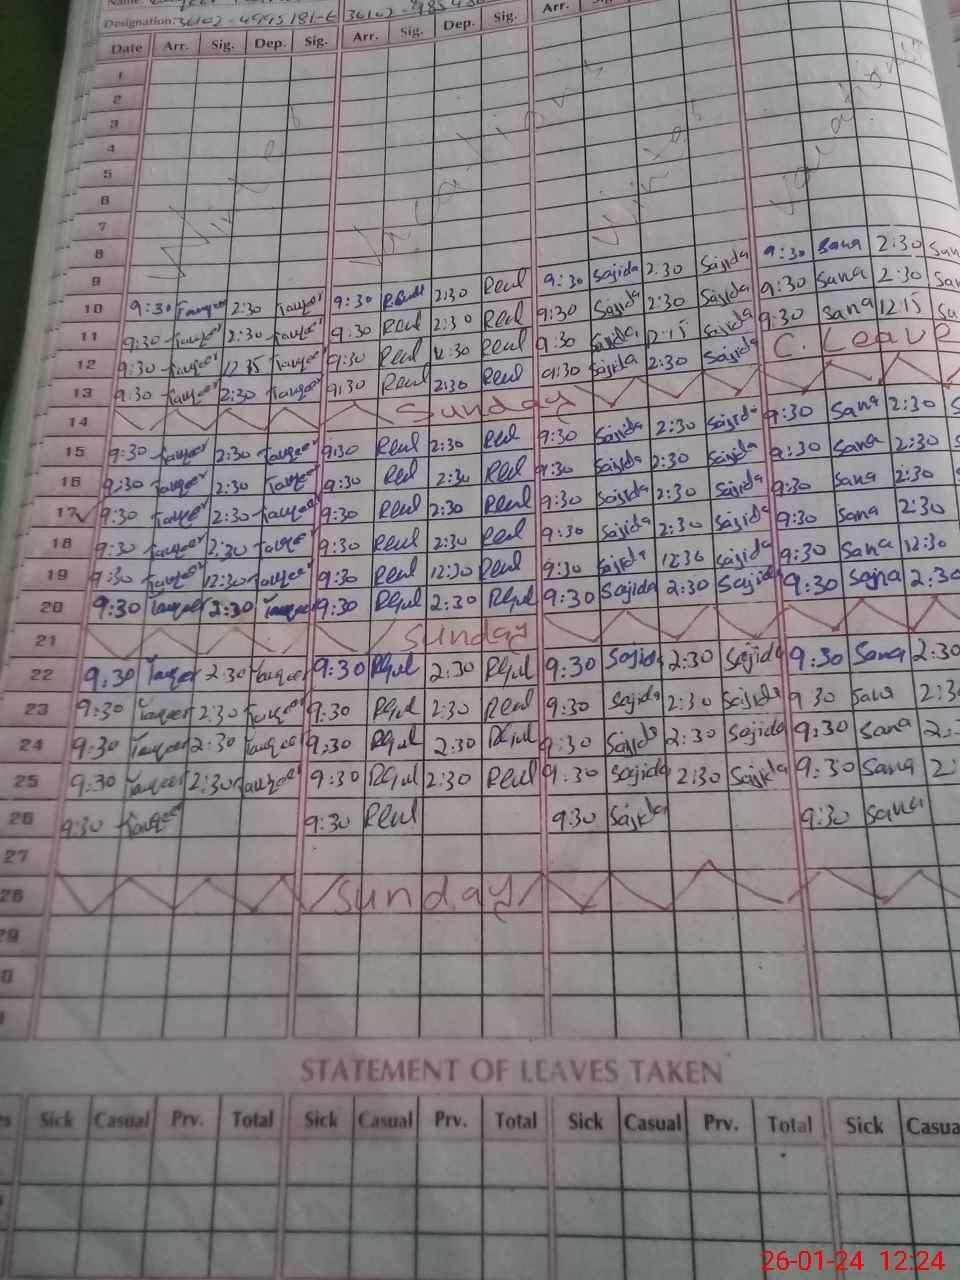 Name:
Designation: 36102-4995181-6 36102-
Date Arr. Sig. Dep. Sig. Arr. Sig. Dep. Sig. Arr.
1
2
3
4
5
6
7
Winter Vacations Winter Vacations
8
9
10 9:30 Tauqeer 2:30 Tauqeer 9:30 2:30 Reul 9:30 Sajida 2:30 Sajida 9:30 Sana 2:30
11 9:30 Tauqeer 2:30 Tauqeer 9:30 Reul 2:30 Reul 9:30 Sajida 2:30 Sajida 9:30 Sana 2:30
12 9:30 Tauqeer Tauqeer 9:30 Reul Reul 9:30 Sajida 12:15 Sajida 9:30 Sana 12:15
13 9:30 Tauqeer 2:30 Tauqeer 9:30 Reul 2:30 Reul 9:30 Sajida 2:30 Sajida C. Leave
14 Sunday
15 9:30 Tauqeer 2:30 Tauqeer 9:30 Reul 2:30 Reul 9:30 Sajida 2:30 Sajida 9:30 Sana 2:30
16 9:30 Tauqeer 2:30 Tauqeer 9:30 Reul 2:30 Reul 9:30 Sajida 2:30 Sajida 9:30 Sana 2:30
17 9:30 Tauqeer 2:30 Tauqeer 9:30 Reul 2:30 Reul 9:30 Sajida 2:30 Sajida 9:30 Sana 2:30
18 9:30 Tauqeer 2:30 Tauqeer 9:30 Reul 2:30 Reul 9:30 Sajida 2:30 Sajida 9:30 Sana 2:30
19 9:30 Tauqeer 12:30 Tauqeer 9:30 Reul 12:30 Reul 9:30 Sajida 12:30 Sajida 9:30 Sana 12:30
20 9:30 Tauqeer 2:30 Tauqeer 9:30 Rgul 2:30 Rgul 9:30 Sajida 2:30 Sajida 9:30 Sana 2:30
21 Sunday
22 9:30 Tauqeer 2:30 Tauqeer 9:30 Rgul 2:30 Rgul 9:30 Sajida 2:30 Sajida 9:30 Sana 2:30
23 9:30 Tauqeer 2:30 Tauqeer 9:30 Rgul 2:30 Reul 9:30 Sajida 2:30 Sajida 9:30 Sana
24 9:30 Tauqeer 2:30 Tauqeer 9:30 Rgul 2:30 Rgul 9:30 Sajida 2:30 Sajida 9:30 Sana
25 9:30 Tauqeer 2:30 Tauqeer 9:30 Rgul 2:30 Reul 9:30 Sajida 2:30 Sajida 9:30 Sana
26 9:30 Tauqeer 9:30 Reul 9:30 Sajida 9:30 Sana
27
28 Sunday
STATEMENT OF LEAVES TAKEN
Sick Casual Prv. Total Sick Casual Prv. Total Sick Casual Prv. Total Sick Casua
26-01-24 12:24